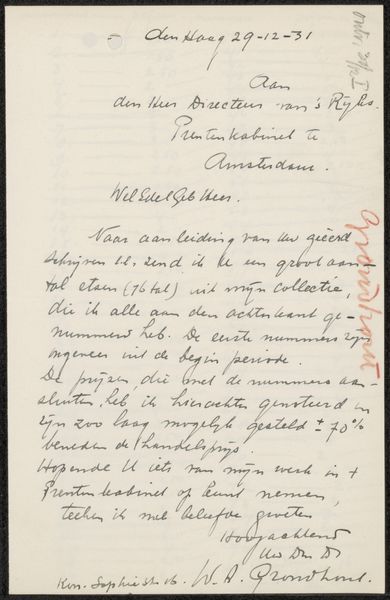 den Haag 29-12-31
Aan
den Heer Directeur van 's Ryks.
Prentenkabinet te
Amsterdam.
WelEdelGeb Heer.
Naar aanleiding van Uw geëerd
schrijven l.l. zend ik U een groot aan-
tal etsen (76 tal) uit mijn collectie,
die ik alle aan den achterkant ge-
nummerd heb. De eerste nummers zijn
ongeveer uit de begin periode.
De prijzen, die met de nummers aan-
sluiten, heb ik hierachter genoteerd en
zijn zoo laag mogelijk gesteld ± 70%
beneden de handelsprijs.
Hopende U iets van mijn werk in 't
Prentenkabinet op kunt nemen,
teeken ik met beleefde groeten
Hoogachtend
Uw Dw D
W. A. Grondhout.
Kon. Sophiestr 16.
Grondhout